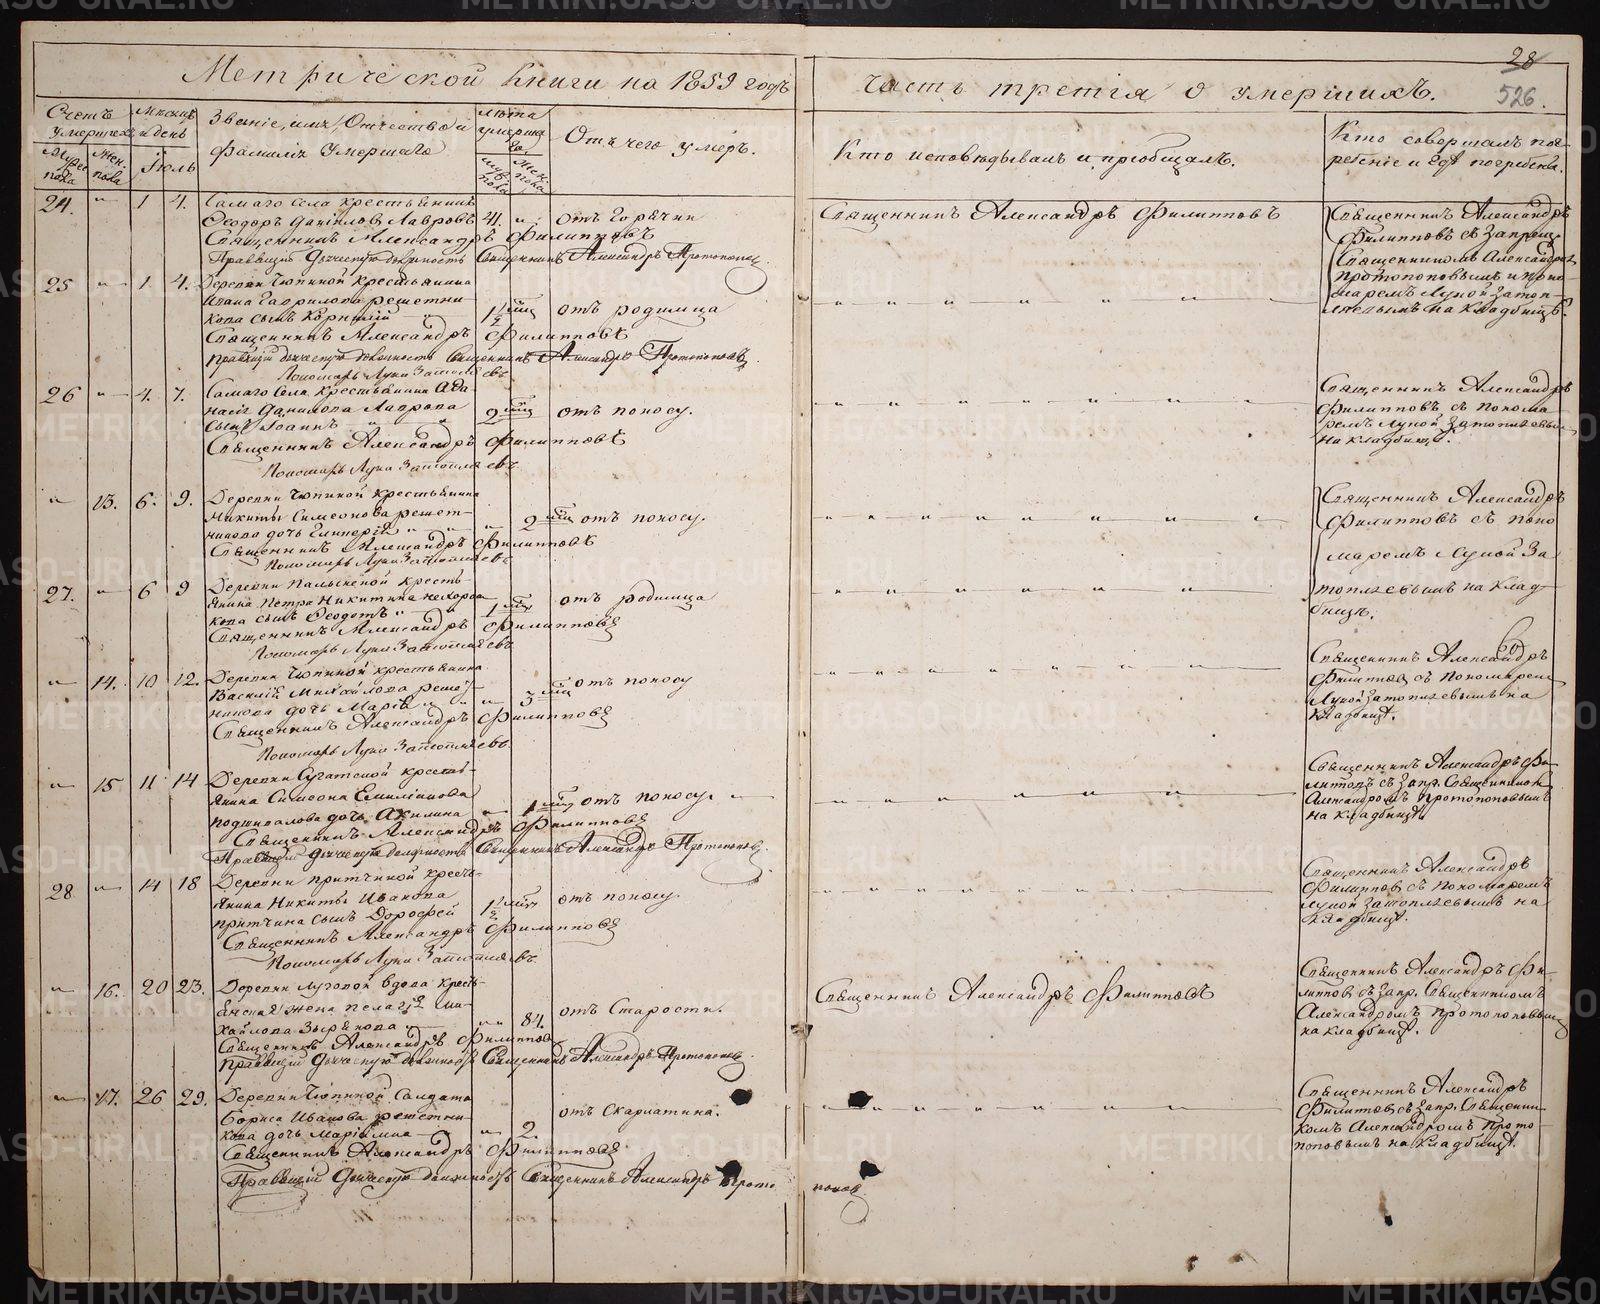 28
526.
Метрической Книги на 1859 годъ
часть третія о умершихъ.
Счетъ умершихъ
Мужес. пола
Жен. пола
Месяцъ и день
Іюль
Званіе, имя, Отчество и
фамилія Умершаго
лѣта умерша
муж. пола
жен. пола
Отъ чего умеръ.
Кто исповѣдывалъ и пріобщалъ.
Кто совершалъ пог-
ребеніе и гдѣ погребены.
24. " 1 4.
Самаго Села крестьянинъ
Ѳеодоръ Даніиловъ Лавровъ 41. " отъ Горячки
Священникъ Александръ Филипповъ
Правящій Дьяческую должность Священникъ Александръ Протопоповъ
Священникъ Александръ Филипповъ
Священникъ Александръ
Филипповъ съ Запрещ.
Священникомъ Александромъ
Протопоповымъ и поно-
маремъ Лукой Затоп-
ляевымъ на Кладбищѣ.
25 " 1 4.
Деревни Тюпиной Крестьянина
Ивана Гаврилова Решетни-
кова сынъ Корнилій 1 1/2 мцъ отъ родимца
Священникъ Александръ Филипповъ
Правящій дьяческую должность Священникъ Александръ Протопоповъ
Пономарь Лука Затопляевъ
26 " 4. 7.
Самаго Села Крестьянина Афа-
насія Данилова Лаврова
сынъ Іоаннъ 2 мцъ отъ поносу.
Священникъ Александръ Филипповъ
Пономарь Лука Затопляевъ
Священникъ Александръ
Филипповъ, съ Понома-
ремъ Лукой Затопляевымъ
на кладбищѣ.
" 13. 6. 9.
Деревни Тюпиной Крестьянина
Никиты Симеонова Решет-
никова дочь Гликерія " 2 мцъ отъ поносу.
Священникъ Александръ Филипповъ
Пономарь Лука Затопляевъ
Священникъ Александръ
Филипповъ съ Поно
маремъ Лукой За
топляевымъ на Клад-
бищѣ.
27. " 6 9
Деревни Палкиной кресть-
янина Петра Никитина
кова сынъ Ѳеодотъ 1 мцъ отъ родимца
Священникъ Александръ Филипповъ
Пономарь Лука Затопляевъ
" 14. 10 12.
Деревни Тюпиной крестьянина
Василія Михайлова Решет-
никова дочь Марія " 3 мцъ отъ поносу
Священникъ Александръ Филипповъ
Пономарь Лука Затопляевъ
Священникъ Александръ
Филипповъ съ Пономаремъ
Лукой Затопляевымъ на
Кладбищѣ.
" 15 11 14
Деревни кресть-
янина Симеона Емиліанова
Подшивалова дочь Акилина " 1 мцъ отъ поносу.
Священникъ Александръ Филипповъ
Правящій Дьяческую должность Священникъ Александръ Протопоповъ
Священникъ Александръ Фи-
липповъ съ Запр. Священникомъ
Александромъ Протопоповымъ
на кладбищѣ.
28 " 14 18
Деревни Притчиной кресть-
янина Никиты Иванова
Притчина сынъ Дорофей 1 1/2 мцъ отъ поносу
Священникъ Александръ Филипповъ
Пономарь Лука Затопляевъ
Священникъ Александръ
Филипповъ съ Пономаремъ
Лукой Затопляевымъ на
Кладбищѣ.
" 16. 20 23.
Деревни Луговой вдова кресть-
янская жена Пелагія Ми-
хайлова Зырянова " 84. отъ Старости.
Священникъ Александръ Филипповъ
Правящій Дьяческую должность Священникъ Александръ Протопоповъ
Священникъ Александръ Филипповъ
Священникъ Александръ Фи-
липповъ съ Запр. Священникомъ
Александромъ Протопоповымъ
на кладбищѣ.
" 17. 26 29.
Деревни Тюпиной Солдата
Бориса Иванова Решетни-
кова дочь Маріамна " 2. отъ Скарлатина.
Священникъ Александръ Филипповъ
Правящій Дьяческую должность Священникъ Александръ Прото
поповъ
Священникъ Александръ
Филипповъ съ Запр. Священни-
комъ Александромъ Прото-
поповымъ на кладбищѣ.
METRIKI.GASO-URAL.RU